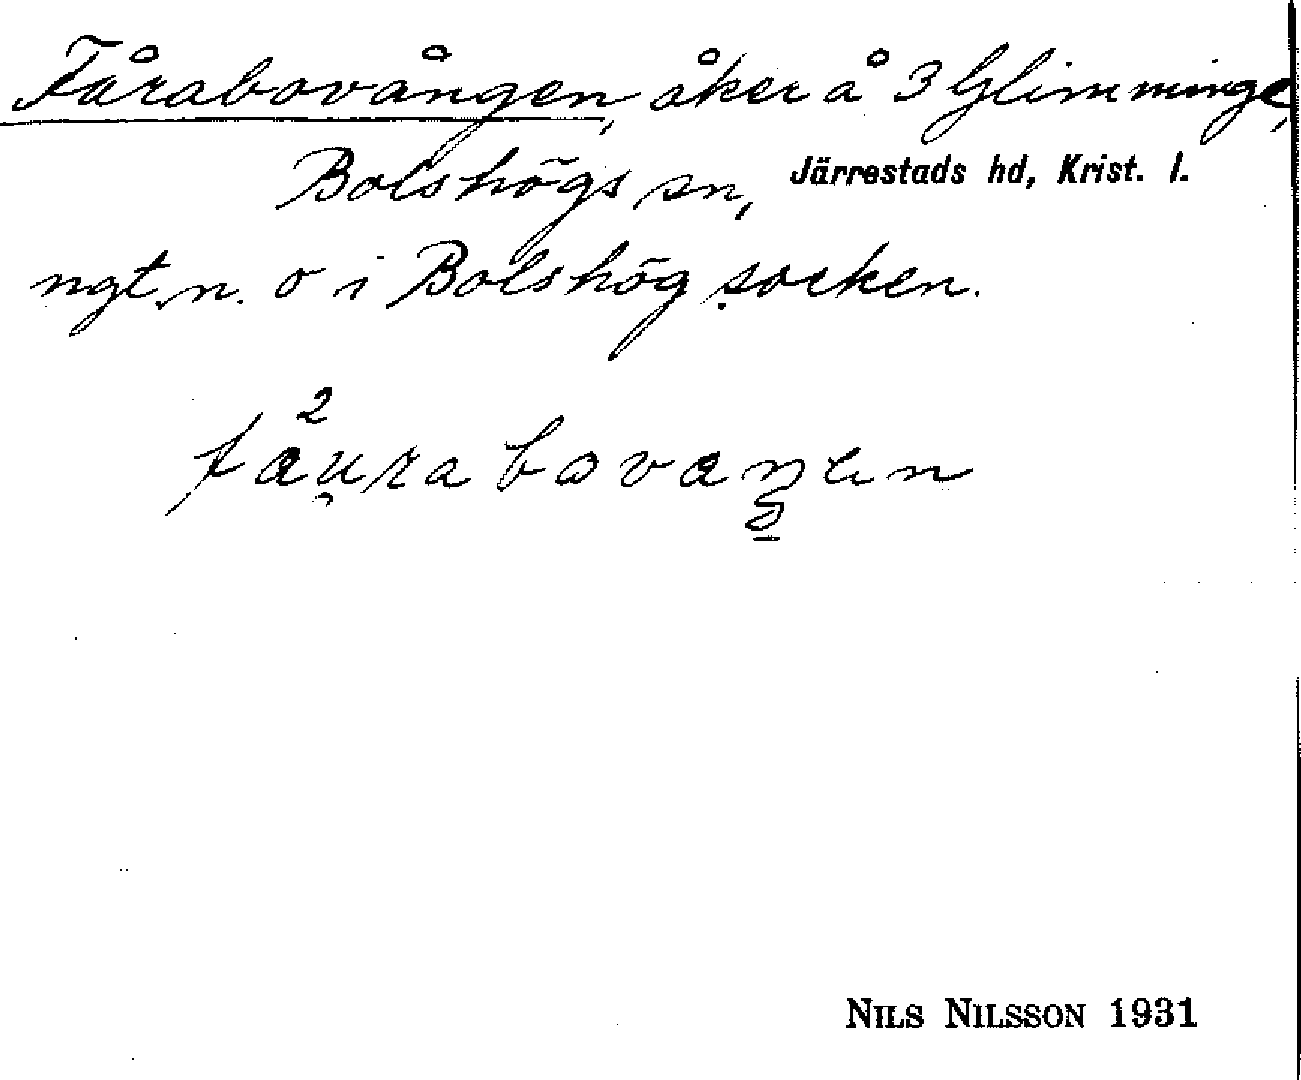 Fårabovången, åker å 3 Glimminge,
Bolshögs sn, Järrestads hd, Krist. l.
ngt n. o i Bolshög socken.
NILS NILSSON 1931